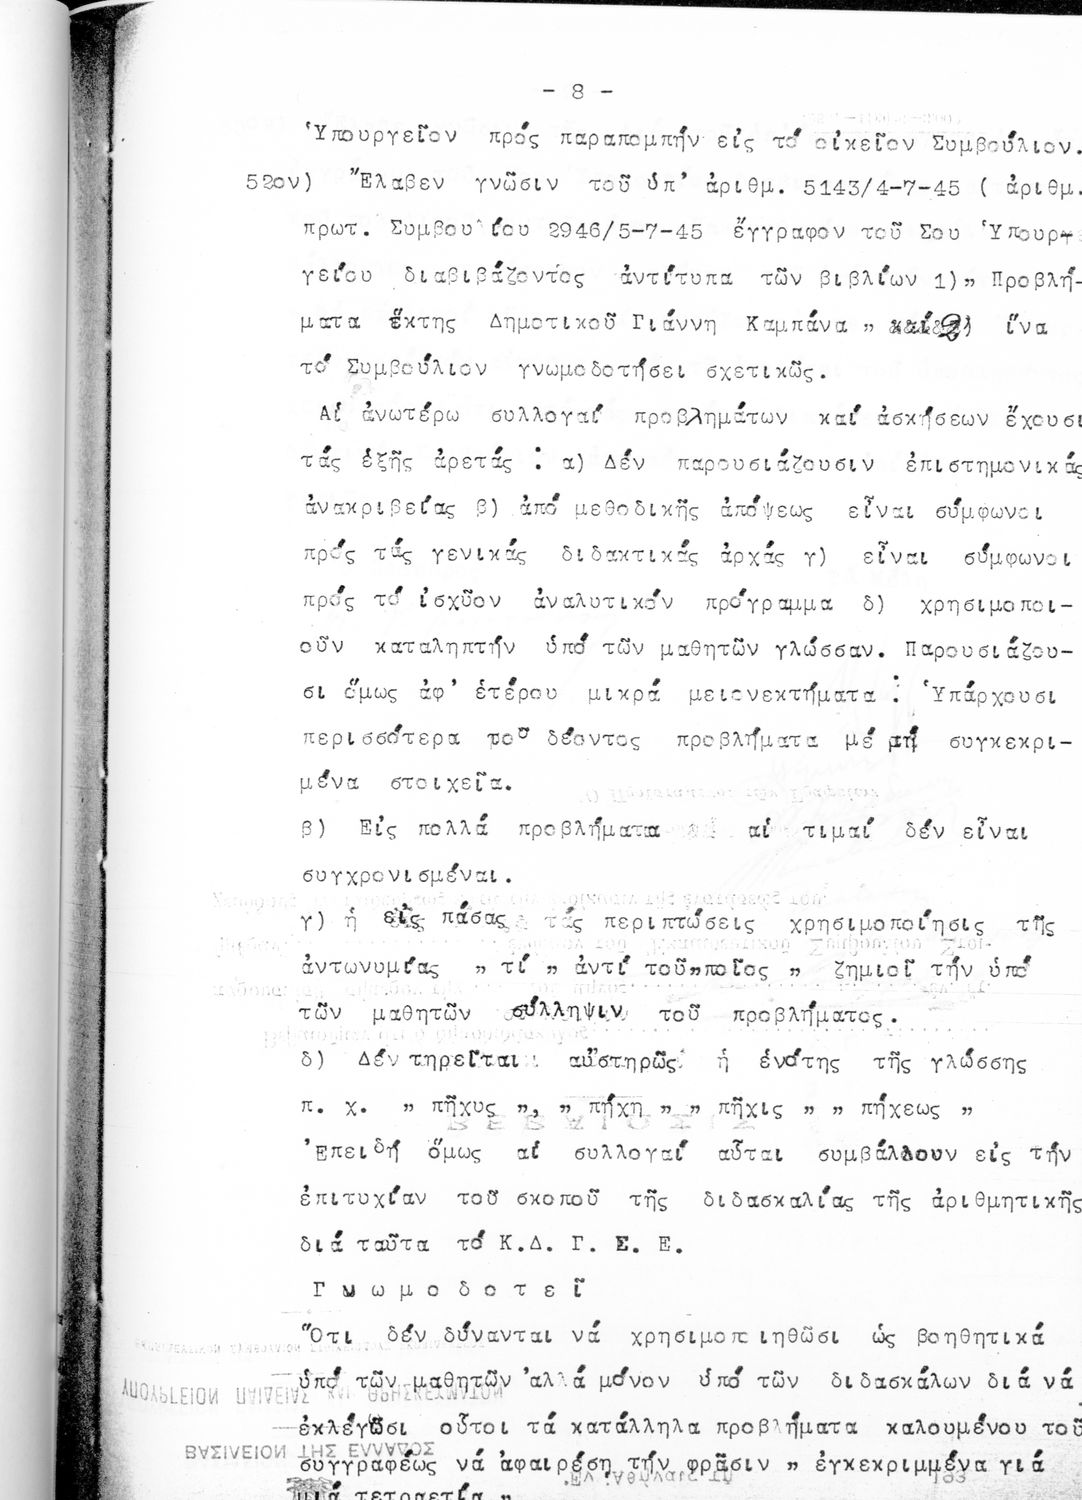 - 8 -
Ὑπουργεῖον πρός παραπομπήν είς τό οἰκεῖον Συμβούλιον.
52ον) Ἔλαβεν γνῶσιν τοῦ ὑπ' ἀριθμ. 5143/4-7-45 ( ἀριθμ.
πρωτ. Συμβουλίου 2946/5-7-45 ἔγγραφον τοῦ Σου Ὑπουρ-
γείου διαβιβάζοντος ἀντίτυπα τῶν βιβλίων 1)„ Προβλή-
ματα ἕκτης Δημοτικοῦ Γιάννη Καμπάνα „ καί 2) ἵνα
τό Συμβούλιον γνωμοδοτήσει σχετικῶς.
Αἱ ἀνωτέρω συλλογαί προβλημάτων καί ἀσκήσεων ἔχουσι
τάς ἑξῆς ἀρετάς : α) Δέν παρουσιάζουσιν ἐπιστημονικάς
ἀνακριβείας β) ἀπό μεθοδικῆς ἀπόψεως εἶναι σύμφωνοι
πρός τάς γενικάς διδακτικάς ἀρχάς γ) εἶναι σύμφωνοι
πρός τό ἰσχῦον ἀναλυτικόν πρόγραμμα δ) χρησιμοποι-
οῦν καταληπτήν ὑπό τῶν μαθητῶν γλώσσαν. Παρουσιάζου-
σι ὅμως ἀφ' ἑτέρου μικρά μειονεκτήματα : Ὑπάρχουσι
περισσότερα τοῦ δέοντος προβλήματα μέ μή συγκεκρι-
μένα στοιχεῖα.
β) Εἰς πολλά προβλήματα αἱ τιμαί δέν εἶναι
συγχρονισμέναι.
γ) ἡ εἰς πάσας τάς περιπτώσεις χρησιμοποίησις τῆς
ἀντωνυμίας „ τί „ ἀντί τοῦ„ποῖος „ ζημιοῖ τήν ὑπό
τῶν μαθητῶν σύλληψιν τοῦ προβλήματος.
δ) Δέν τηρεῖται αὐστηρῶς ἡ ἑνότης τῆς γλώσσης
π. χ. „ πῆχυς „, „ πήχη „ „ πῆχις „ „ πήχεως „
Ἐπειδή ὅμως αἱ συλλογαί αὗται συμβάλλουν εἰς τήν
ἐπιτυχίαν τοῦ σκοποῦ τῆς διδασκαλίας τῆς ἀριθμητικῆς
διά ταῦτα τό Κ.Δ. Γ. Σ. Ε.
Γ ν ω μ ο δ ο τ ε ῖ
Ὅτι δέν δύνανται νά χρησιμοποιηθῶσι ὡς βοηθητικά
ὑπό τῶν μαθητῶν ἀλλά μόνον ὑπό τῶν διδασκάλων διά νά
ἐκλέγωσι οὗτοι τά κατάλληλα προβλήματα καλουμένου τοῦ
συγγραφέως νά ἀφαιρέση τήν φρᾶσιν „ ἐγκεκριμμένα γιά
μιά τετραετία „